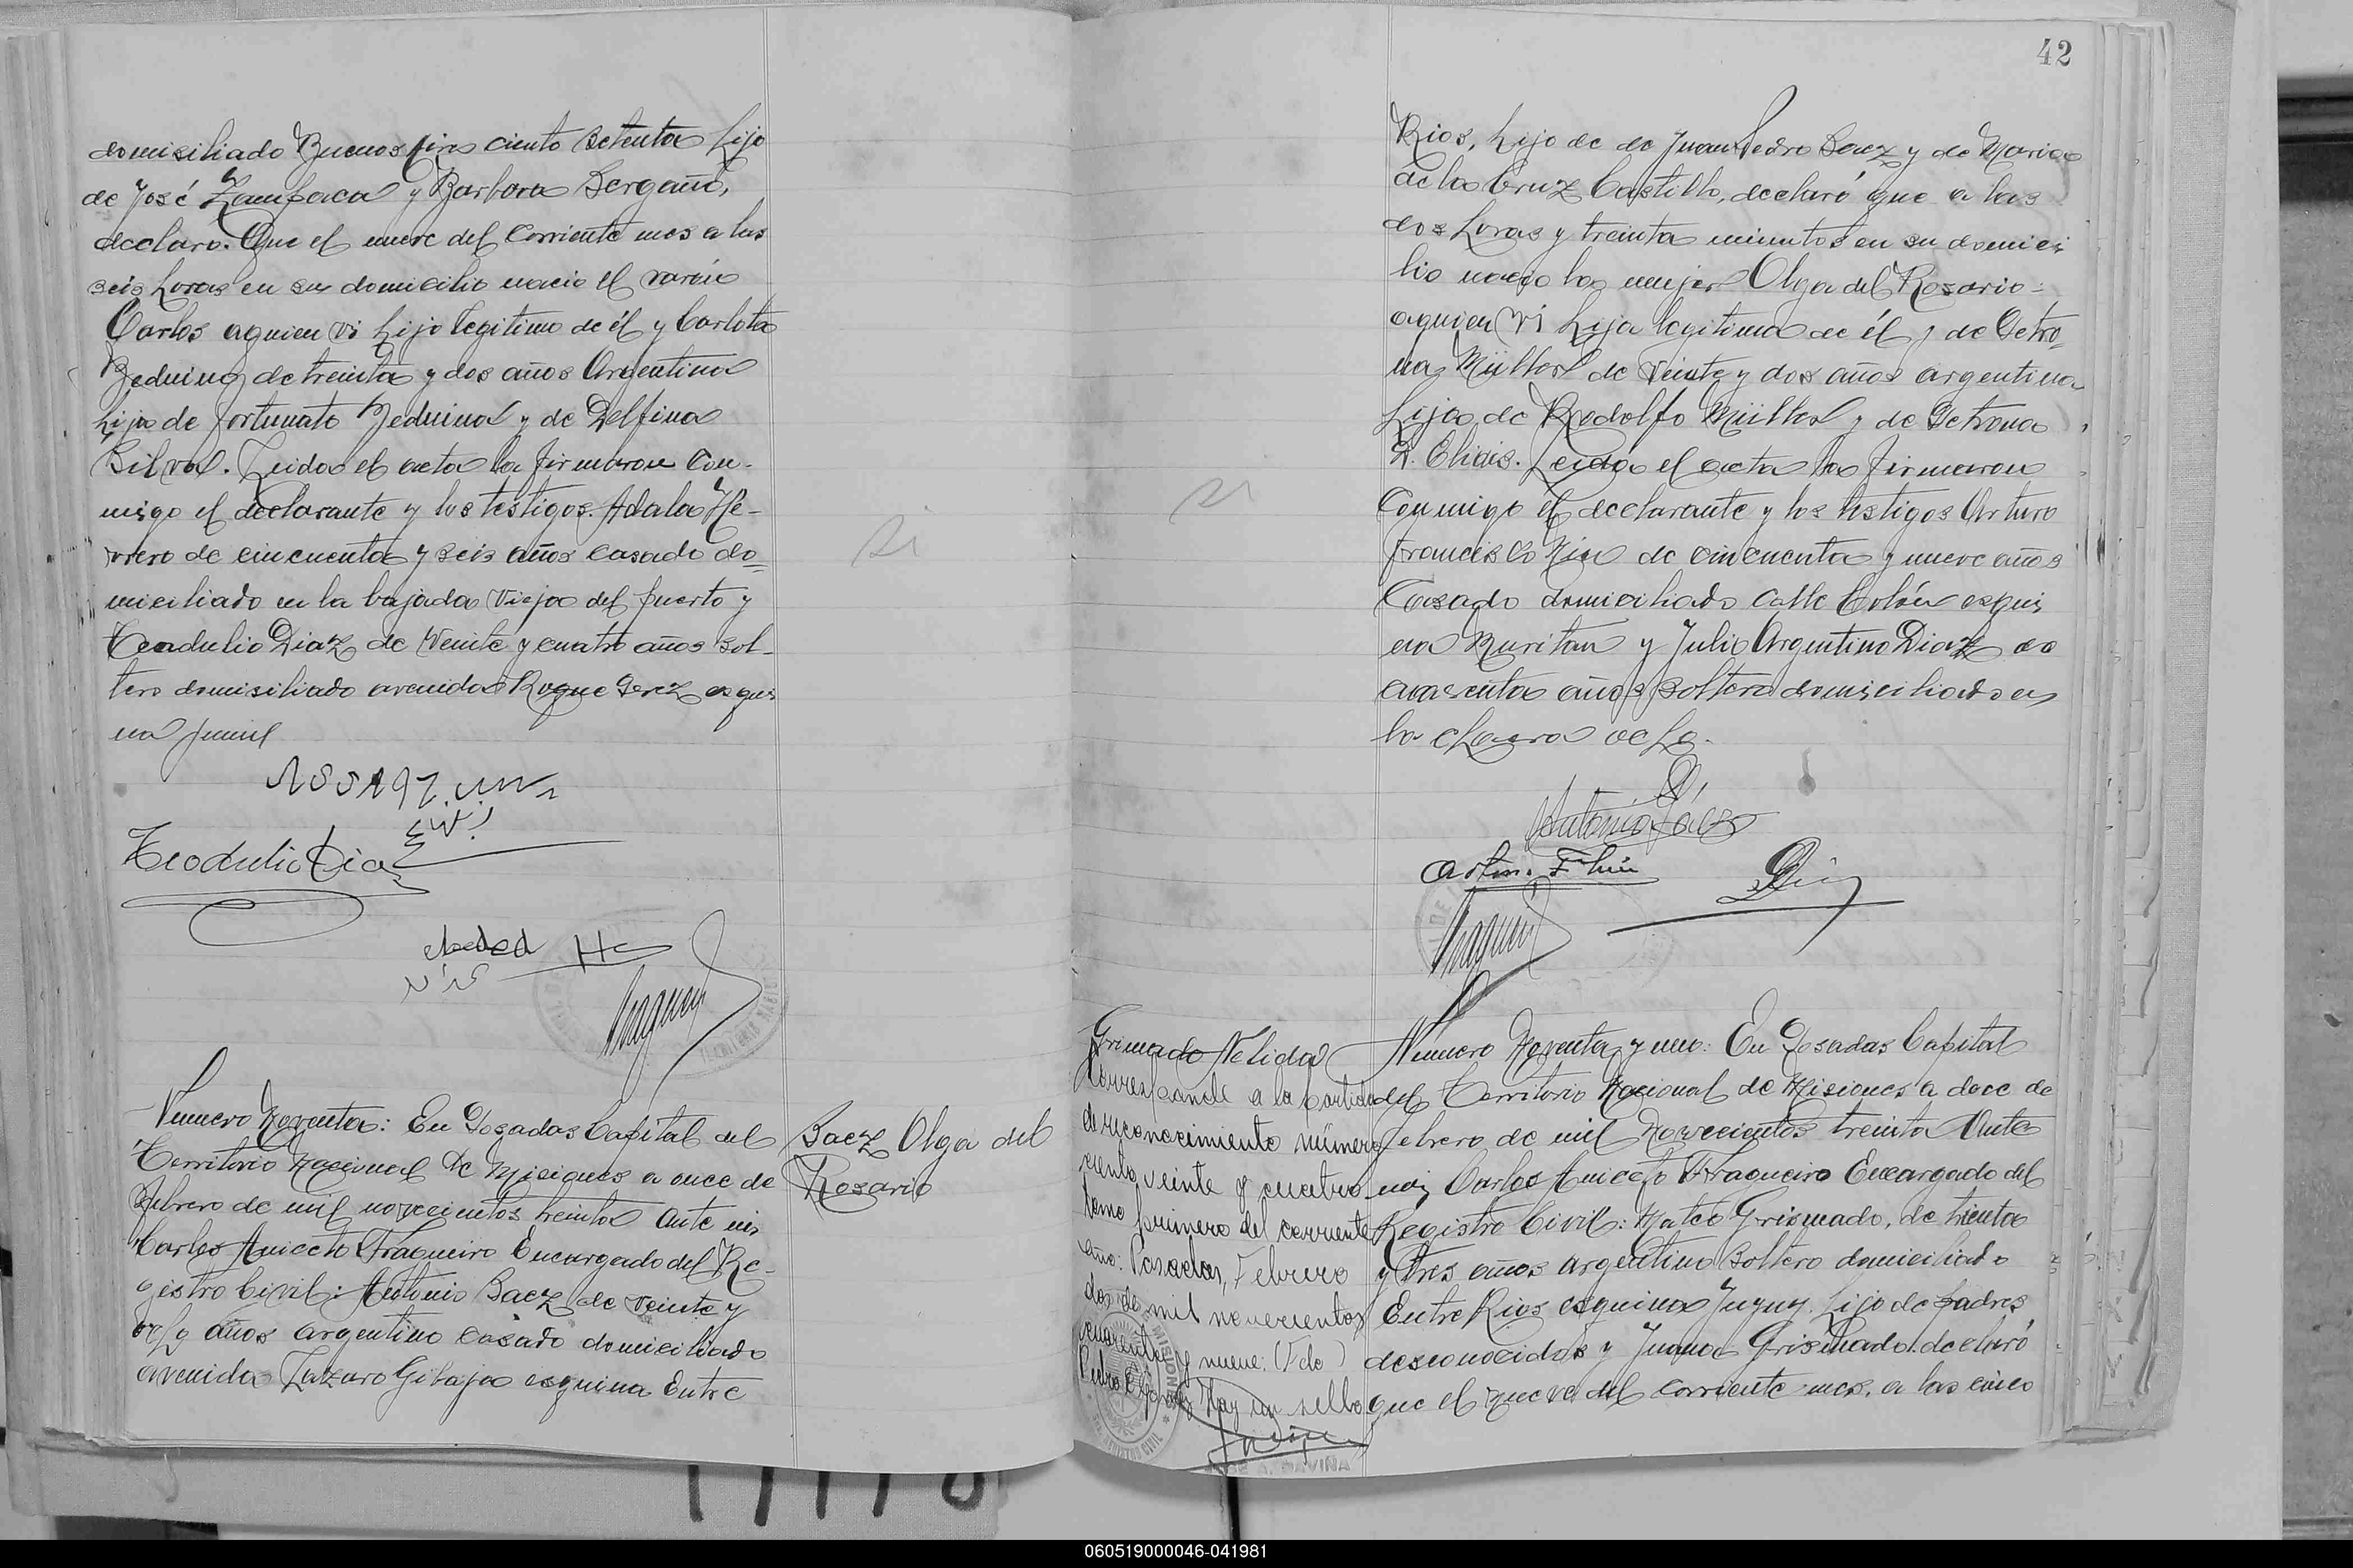 domisiliado Buenos Aires ciento setenta hijo
de José Zampaca y Barbara Bergañó,
declaro. Que el nueve del corriente mes a las
seis horas en su domicilio nacio el varón
Carlos aquien vi hijo legitimo de él y Carlota
de treinta y dos años Argentina
hija de Fortunato y de Delfina
Silva. Leida el acta la firmaron con-
migo el declarante y los testigos. Adala He-
rrero de cincuenta y seis años casado do=
miciliado en la bajada Vieja del puerto y
Teodulio Diaz de Veinte y cuatro años sol-
tero domisiliado avenida Roque Perez esqui
na Junin
Teodulio Diaz
Numero Noventa: En Posadas Capital del
Territorio Nacional De Misiones a once de
febrero de mil novecientos treinta Ante mi,
Carlos Aniceto Fragueiro Encargado del Re-
gistro Civil: Antonio Baez de veinte y
ocho años argentino casado domiciliado
avenida Lazaro Gibaja esquina Entre
Baez Olga del
Rosario
si
42
Rios, hijo de de Juan Pedro Baez y de Maria
de la Cruz Castillo, declaró que a las
dos horas y treinta minutos en su domici
lio nacio la mujer Olga del Rosario=
aquien vi hija legitima de él y de Petro=
na Müller de Veinte y dos años argentina
hija de Rodolfo Müller y de Petrona
Leida el acta la firmaron
conmigo el declarante y los testigos Arturo
Francisco de cincuenta y nueve años
Casado domiciliado calle Colón esqui
na y Julio Argentino Diaz de
cuarenta años soltero domiciliado en
la chacra ocho.
si
Antonio Baez
Grimado Nelida
Corresponde a la partida
de reconocimiento número
ciento veinte y cuatro
tomo primero del corriente
año: Posadas, Febrero
dos de mil novecientos
cuarenta y nueve: (Fdo)
Pedro E. Hay un sello
Numero Noventa y uno: En Posadas Capital
del Territorio Nacional de Misiones a doce de
febrero de mil Novecientos treinta Ante
mi, Carlos Aniceto Fragueiro Encargado del
Registro Civil: Mateo Grismado, de treinta
y tres años argentino soltero domiciliado
Entre Rios esquina Jujuy. hijo de padres
desconocidos y Juana Grismado. declaró
que el nueve del corriente mes, a las cinco
060519000046-041981